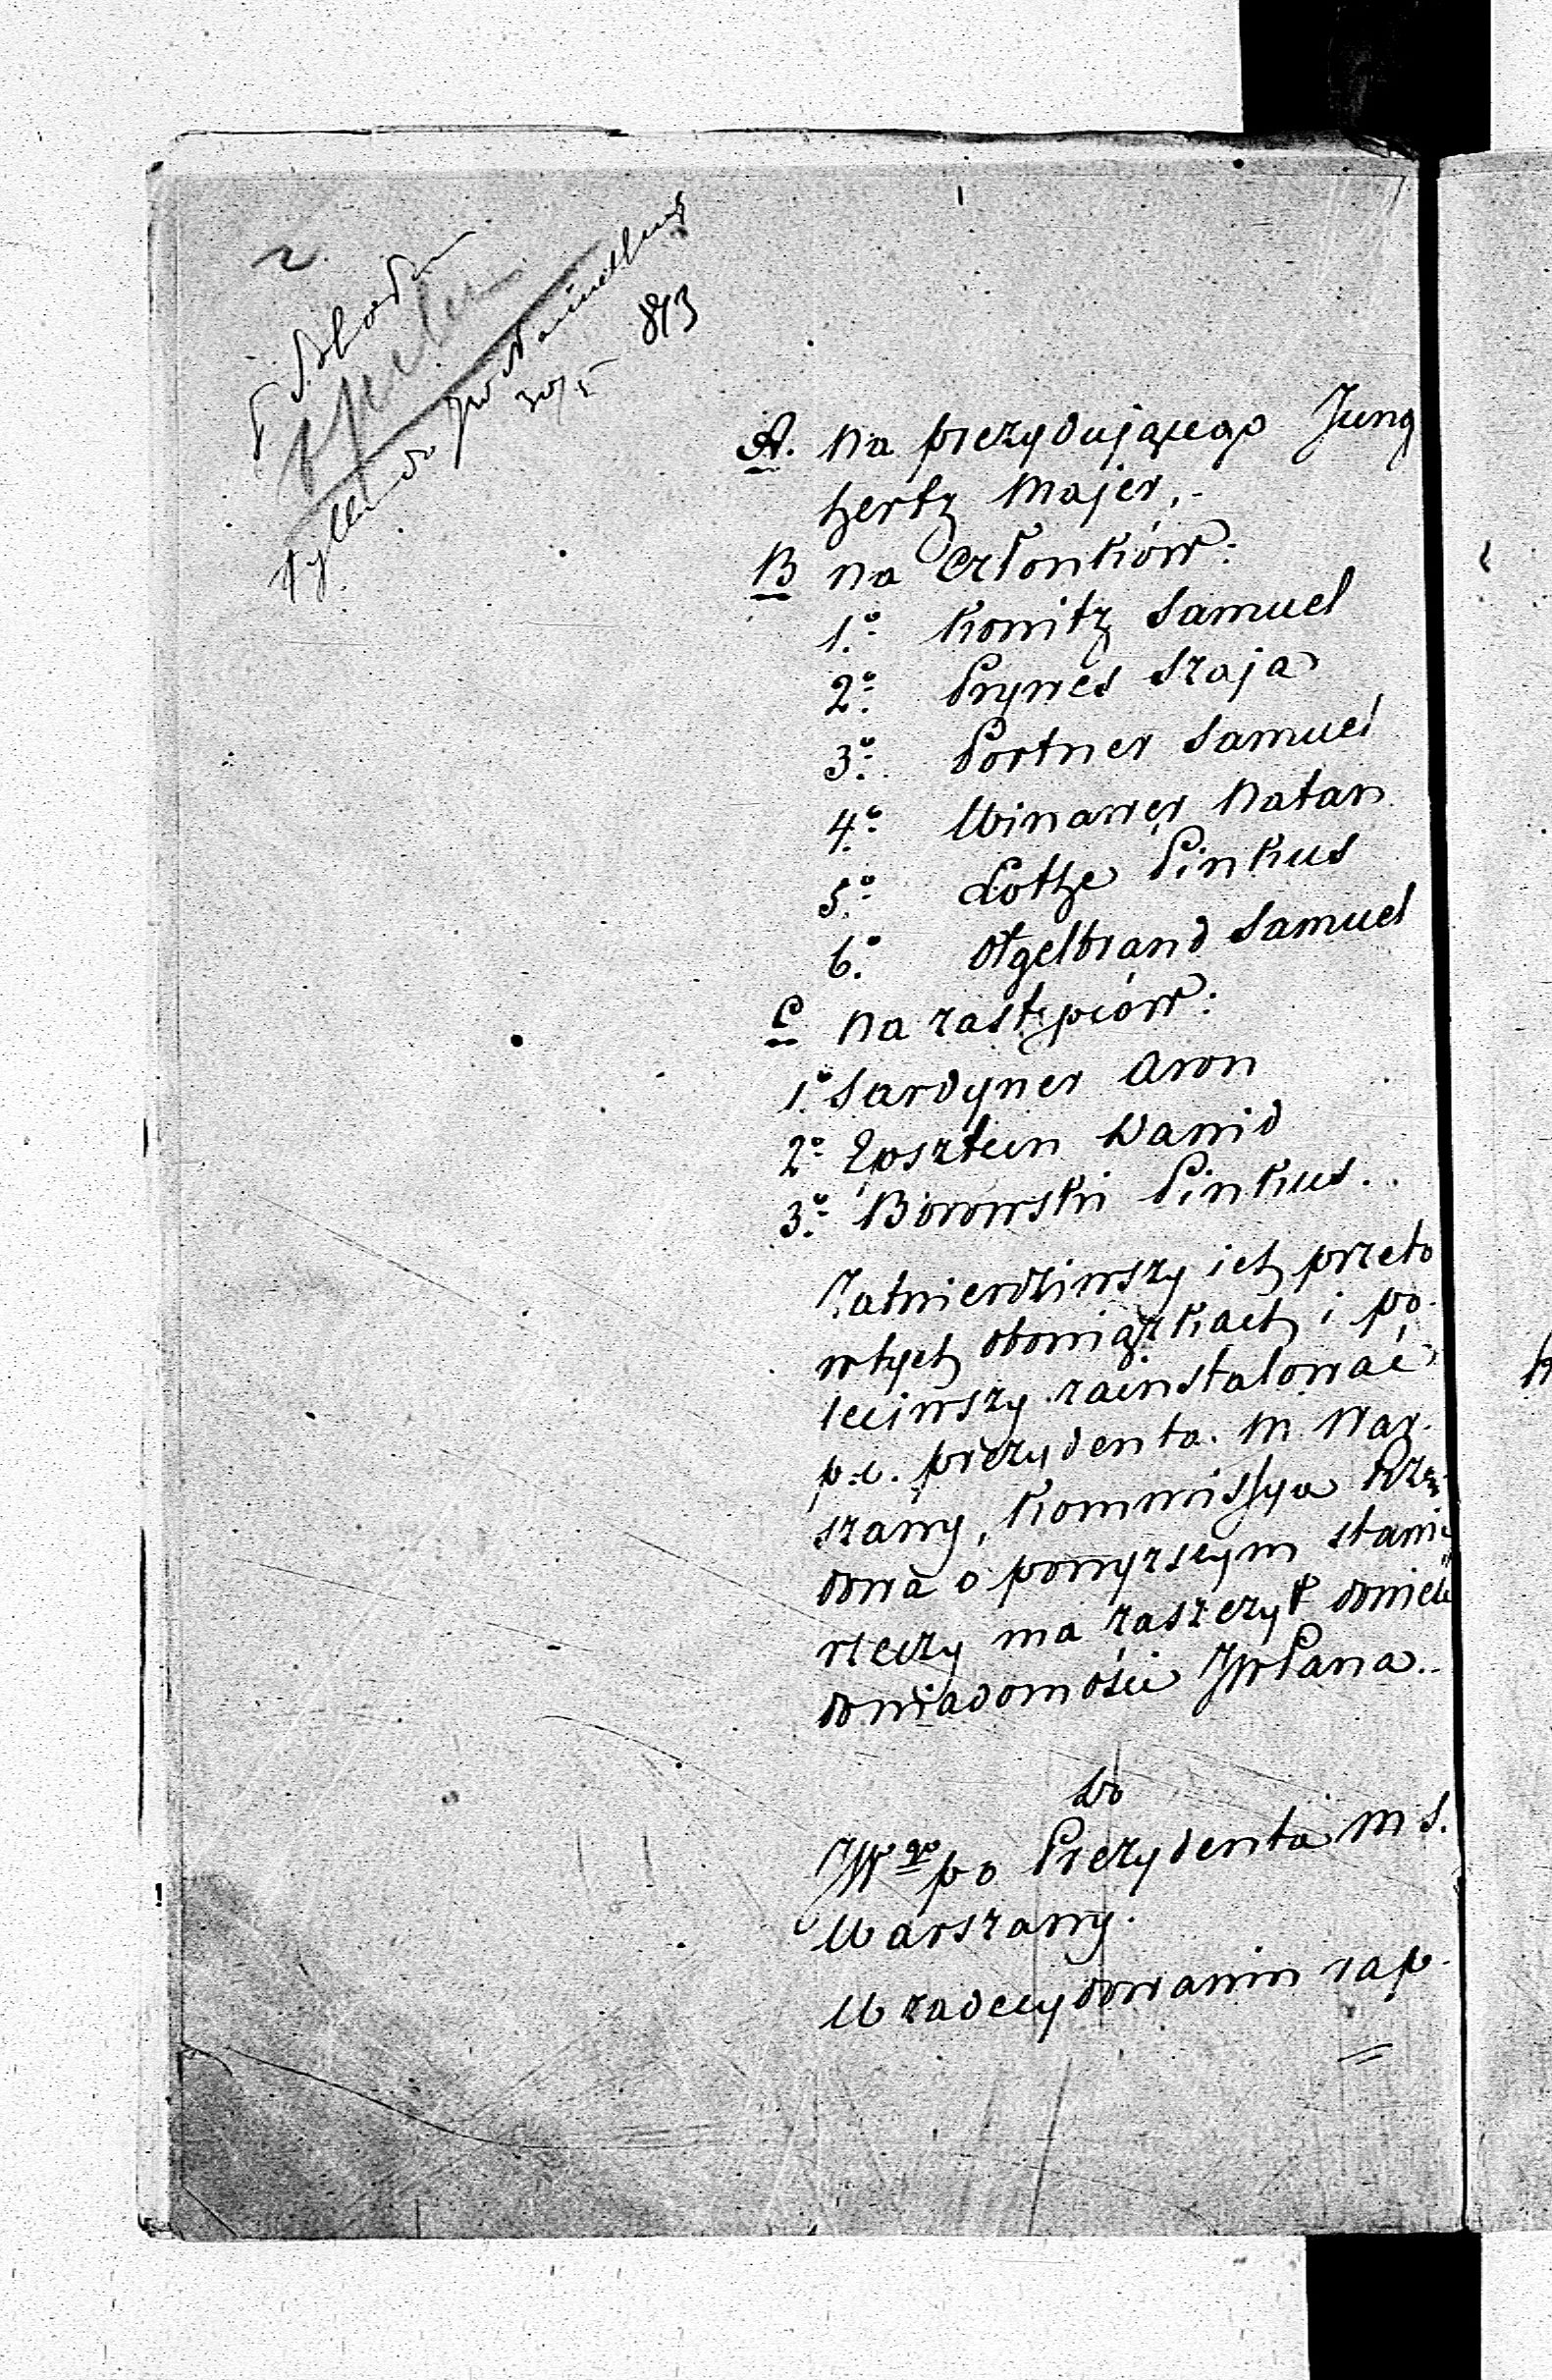 813
A. Na prezydującego Jung
hertz Majer,-
B na Członków:
1.o Konitz Samuel
2.o Prywes Szaja
3.o Portner Samuel
4.o Winawer Natan
5.o Lothe Pinkus
6.o Orgelbrand Samuel
C Na zastępców:
1.o Sardyner Aron
2.o Epsztein Dawid
3.o Borowski Pinkus.
Zatwierdziwszy ich przeto
w tych obowiązkach i po-
leciwszy zainstalować
p.o. prezydenta M. War-
szawy, Kommissya Rzą-
dowa o powyższym stanie
rzeczy ma zaszczyt donieść
do wiadomości JWPana.
Do
JWgo po Prezydenta M S.
Warszawy.
W zadecydowaniu rap-